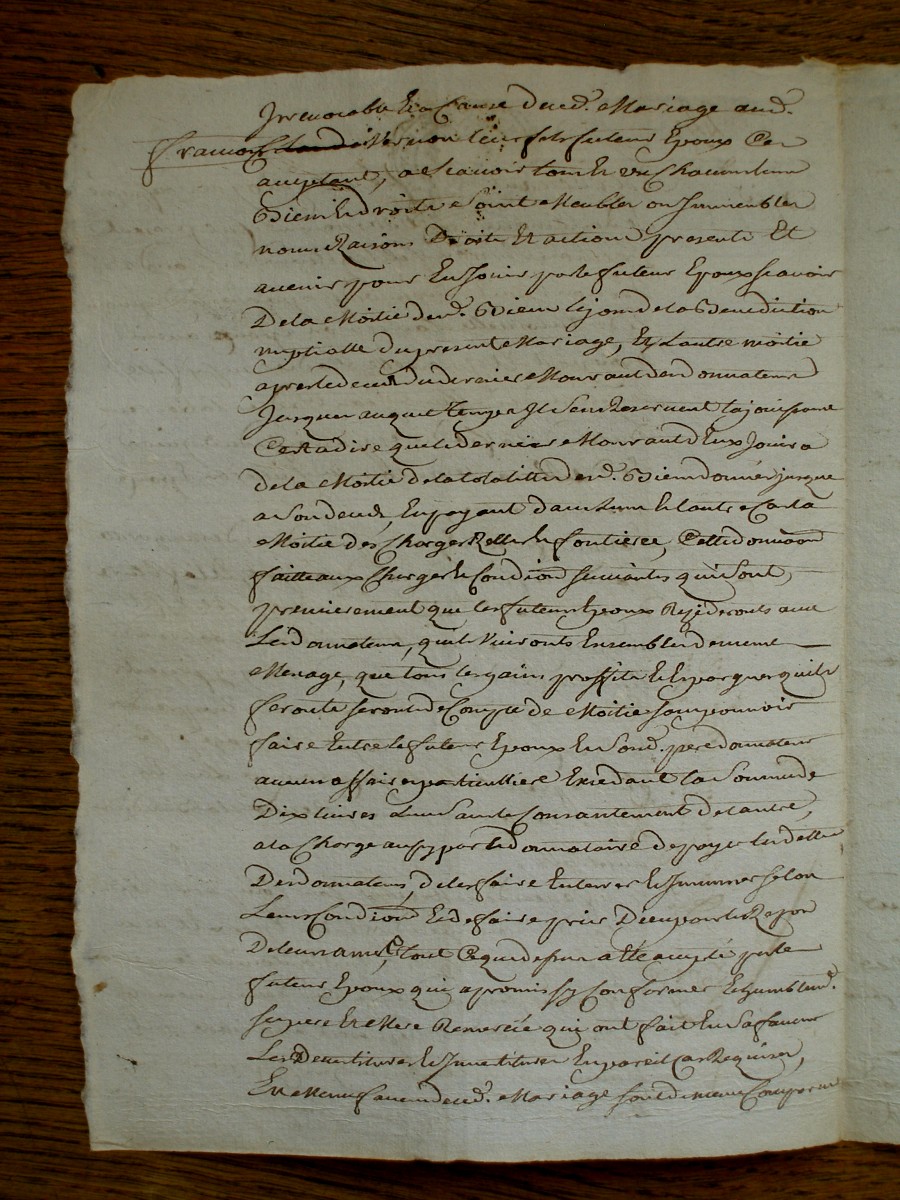 Irrevocable Et a Cause dued. Mariage aud.
francois Claude Vernion leur fils futeur Epoux Ce
acceptant, a Scavoir tous Et un Chacun leurs
Biens Et droits Soint Meubles ou Immeubles
noms Raisons Droits Et actions presents Et
avenir pour En Jouir par le futeur Epoux Scavoir
De la Moitie desd. Biens le jour de la Benediction
nuptialle du present Mariage, Et Lautre moitie
apres le deced du dernier Mourant des donnateurs
Jusques auquel temps Ils sen Reservent la jouissance
Cest a dire que le dernier Mourant dEux Jouira
de la Moitie de la totalitte desd. Biens donnés jusque
a son deced, En payant dans lun Et lautre Cas la
Moitie des Charges Relles Et fontieres, Cette donnaõn
faitte aux Charges Et Condiõns suivantes qui sont,
premierement que les futeurs Epoux Residerontz avec
Lesd donnateurs, quils vivronts Ensembles de meme
Menage, que tous les gains proffits Et Epargnes quils
feronts seront de Compte de Moitie sans pouvoir
faire Entre le futeur Epoux Et Sond. pere donnateur
aucun affaires particulliere Exedant la Somme de
Dix livres Lun Sans le Consantement de lautre,
a la Charge aussy par le donnataire de payer les dettes
Des donnateurs, de les faire Enterrer Et Inhumer selon
Leurs Condiõns Et de faire prier Dieu pour le Repos
De leurs ames, tout Ce que dessus a Ete accepté par le
futeur Epoux qui a promis sy Conformer Et humblemt.
Sa pere Et Mere Remercié qui ont fait En Sa faveur
Les Devestitures Et Investitures En pareil Cas Requises,
En Meme faveur dued. Mariage Sont de meme Comparu